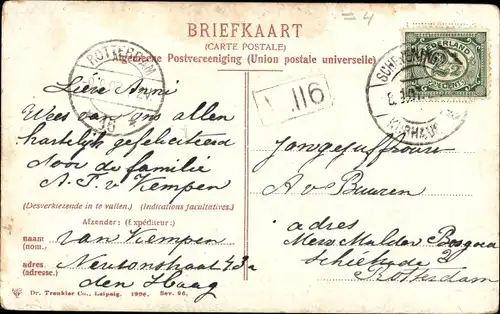 = 4
BRIEFKAART
(CARTE POSTALE)
Algemeene Postvereeniging (Union postale universelle)
ROTTERDAM
15
116
NEDERLAND
2½
CENT
KURHAUS
Lieve Anni
Wees van ons allen
hartelijk gefeliciteerd
door de familie
A. T. v Kempen
(Desverkiezende in te vullen.) (Indications facultatives.)
Afzender: (Expéditeur:)
naam (nom.) van Kempen
adres (adresse.) Newtonstraat 43a
den Haag
Dr. Trenkler Co., Leipzig. 1906. Sev. 26.
Jongejuffrouw
A v Buuren
adres
Mevr Mulder
Schiekade 3
Rotterdam